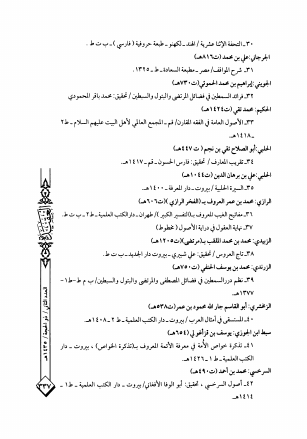 ٣٠ـ التحفة الإثنا عشرية / الهند ـ لكهنو ـ طبعة حروفية ( فارسي ) ـ ب ت ط .
الجرجاني: علي بن محمد (ت٨١٦هـ)
٣١ـ شرح المواقف/ مصر ـ مطبعة السعادة ـ ط ـ ١٣٢٥.
الجويني: إبراهيم بن محمد الحموئي(ت٧٣٠هـ)
٣٢ـ فرائد السمطين في فضائل المرتضى والبتول والسبطين / تحقيق: محمد باقر المحمودي
الحكيم: محمد تقي (ت١٤٢٤هـ)
٣٣ـ الأصول العامة في الفقه المقارن/ قم ـ المجمع العالمي لأهل البيت عليهم السلام ـ ط٢
ـ ١٤١٨هـ.
الحلبي: أبو الصلاح تقي بن نجم ( ت ٤٤٧هـ)
٣٤ـ تقريب المعارف / تحقيق: فارس الحسون ـ قم ـ ١٤١٧هـ.
الحلبي: علي بن برهان الدين (ت١٠٤٤هـ)
٣٥ـ السيرة الحلبية / بيروت ـ دار المعرفة ـ ١٤٠٠هـ.
الرازي: محمد بن عمر المعروف بـ (الفخر الرازي )(ت٦٠٦هـ)
٣٦ـ مفاتيح الغيب المعروف بـ(التفسير الكبير )/ طهران ـ دار الكتب العلمية ـ ط٢ ـ ب ت ط.
٣٧ـ نهاية العقول في دراية الأصول ( مخطوط)
الزبيدي: محمد بن محمد الملقب بـ(مرتضى)(ت١٢٠٥هـ)
٣٨ـ تاج العروس / تحقيق: علي شيري ـ بيروت دار الجديد ـ ب ت ط.
الزرندي: محمد بن يوسف الحنفي (ت٧٥٠هـ)
٣٩ـ نظم درر السمطين في فضائل المصطفى والمرتضى والبتول والسبطين/ ب م ط ـ ط١ـ
١٣٧٧
الزمخشري: أبو القاسم جار الله محمود بن عمر(ت٥٣٨هـ)
٤٠ـ المستقصى في أمثال العرب / بيروت ـ دار الكتب العلمية ـ ط ٢ ـ ١٤٠٨هـ.
سبط ابن الجوزي: يوسف بن قزأغولي (ت ٦٥٤)
٤١ـ تذكرة خواص الأمة في معرفة الأئمة المعروف بـ(تذكرة الخواص) ـ بيروت ـ دار
الكتب العلمية ـ ط ١ ـ ١٤٢٦هـ.
السرخسي: محمد بن أحمد (ت ٤٩٠هـ)
٤٢ـ أصول السرخسي ـ تحقيق: أبو الوفا الأفغاني/ بيروت ـ دار الكتب العلمية ـ ط١ ـ
١٤١٤
العدد الثاني / ذو الحجة / ١٤٣٥هـ
٣٣٧